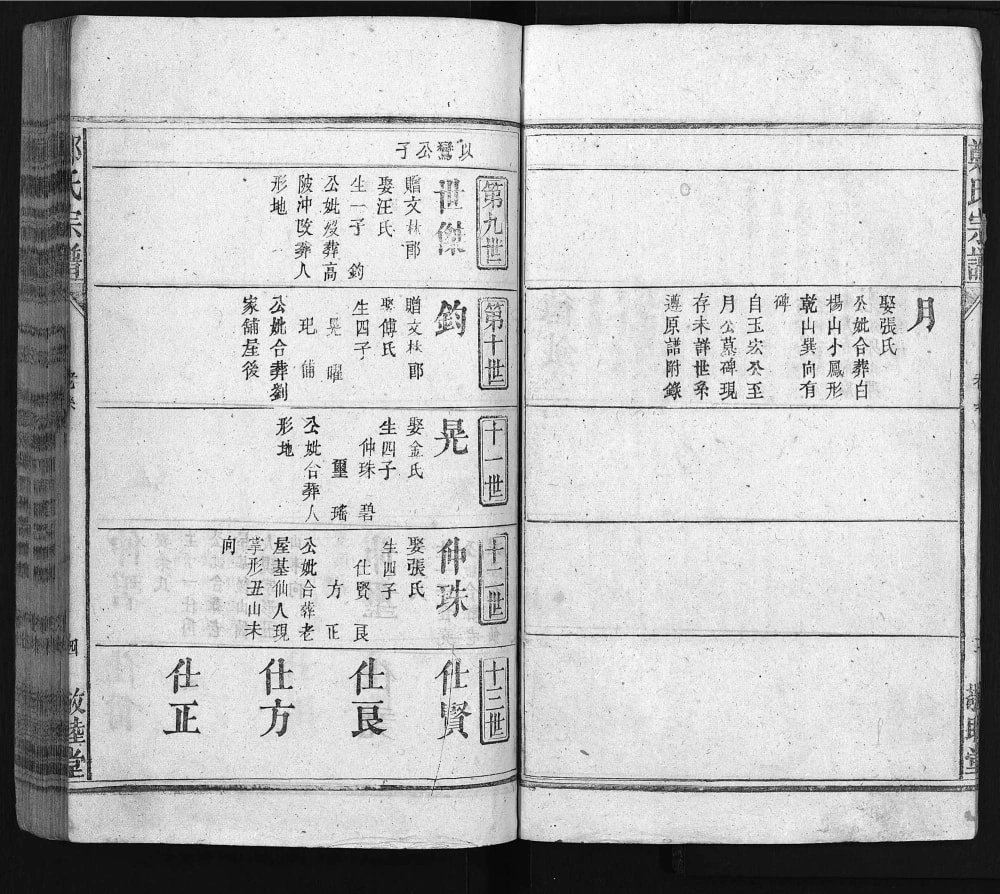 鄭氏宗譜
月
娶張氏
公妣合葬白
楊山小鳳形
乾山巽向有
碑
自玉宏公至
月公墓碑現
存未詳世系
遵原譜附錄
敦睦堂
以鸞公子
第九世
世傑
贈文林郎
娶汪氏
生一子 鈞
公妣歿葬高
陂沖改葬人
形地
第十世
鈞
贈文林郎
娶傅氏
生四子
晃 曜
玘 倫
公妣合葬劉
家舖屋後
十一世
晃
娶金氏
生四子
仲珠 碧
璽 瑤
公妣合葬人
形地
十二世
仲珠
娶張氏
生四子
仕賢 艮
方 正
公妣合葬老
屋基仙人現
掌形丑山未
向
十三世
仕賢
仕艮
仕方
仕正
鄭氏宗譜
四
敦睦堂